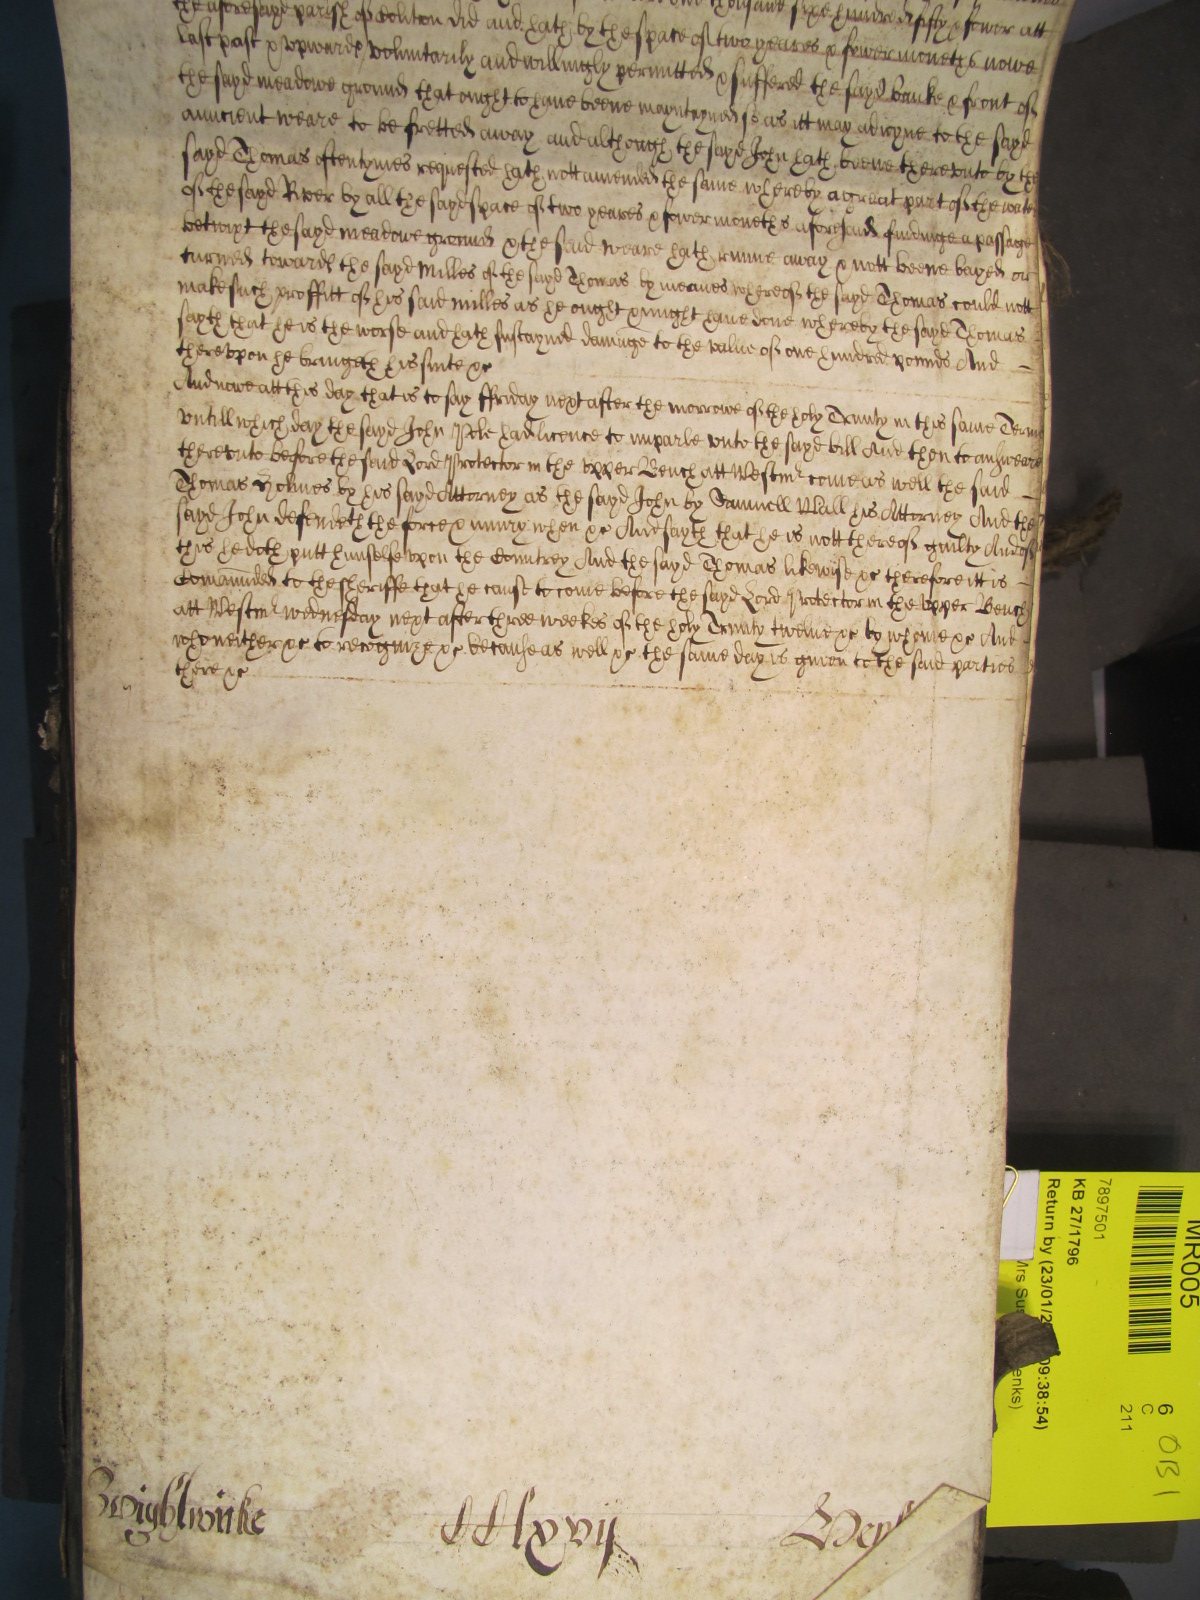 the aforesayd parish of
did and hath by the space of two yeares & fower moneths nowe
last past & upwards voluntarily and willingly permitted & suffered the sayd banke & front of
the sayd meadowe ground that ought to have beene mayntayned so as itt may adioyne to the sayd
auncient weare to be fretted away and although the sayd John hath beene thereunto by the
sayd Thomas oftentymes requested hath nott amended the same whereby a great part of the water
of the sayd River by all the sayd space of two yeares & fower moneths aforesaid findinge a passage
betwixt the sayd meadowe ground & the said weare hath runne away & nott beene bayed or
turned towards the sayd Milles of the sayd Thomas by meanes whereof the sayd Thomas could nott
make such proffitt of his said milles as he ought & might have done whereby the sayd Thomas
sayth that he is the worse and hath susteyned damage to the value of one hundred pounds And
thereupon he bringeth his suite &c
And nowe att this day that is to say ffriday next after the morrowe of the holy Trinity in this same Terme
untill which day the sayd John Pole had licence to imparle unto the sayd bill And then to answeare
thereunto before the said Lord Protector in the upper Bench att Westmr come as well the said
Thomas Holmes by his sayd Attorney as the sayd John by Samuell his Attorney And the
sayd John defendeth the force & iniury when &c And sayth that he is nott thereof guilty And of
this he doth putt himselfe upon the Countrey And the sayd Thomas likewise &c therefore itt is
Comaunded to the sheriffe that he cause to come before the sayd Lord Protector in the upper Bench
att Westmr wednesday next after three weekes of the holy Trinity twelve &c by whome &c And
who neither &c to recognize &c because as well &c the same day is given to the said parties
there &c
Wightwicke
CClxvij
7897501
KB 27/1796
Return by (23/01/2 09:38:54)
Mrs Su enks)
MR005
6
C
211
OB1